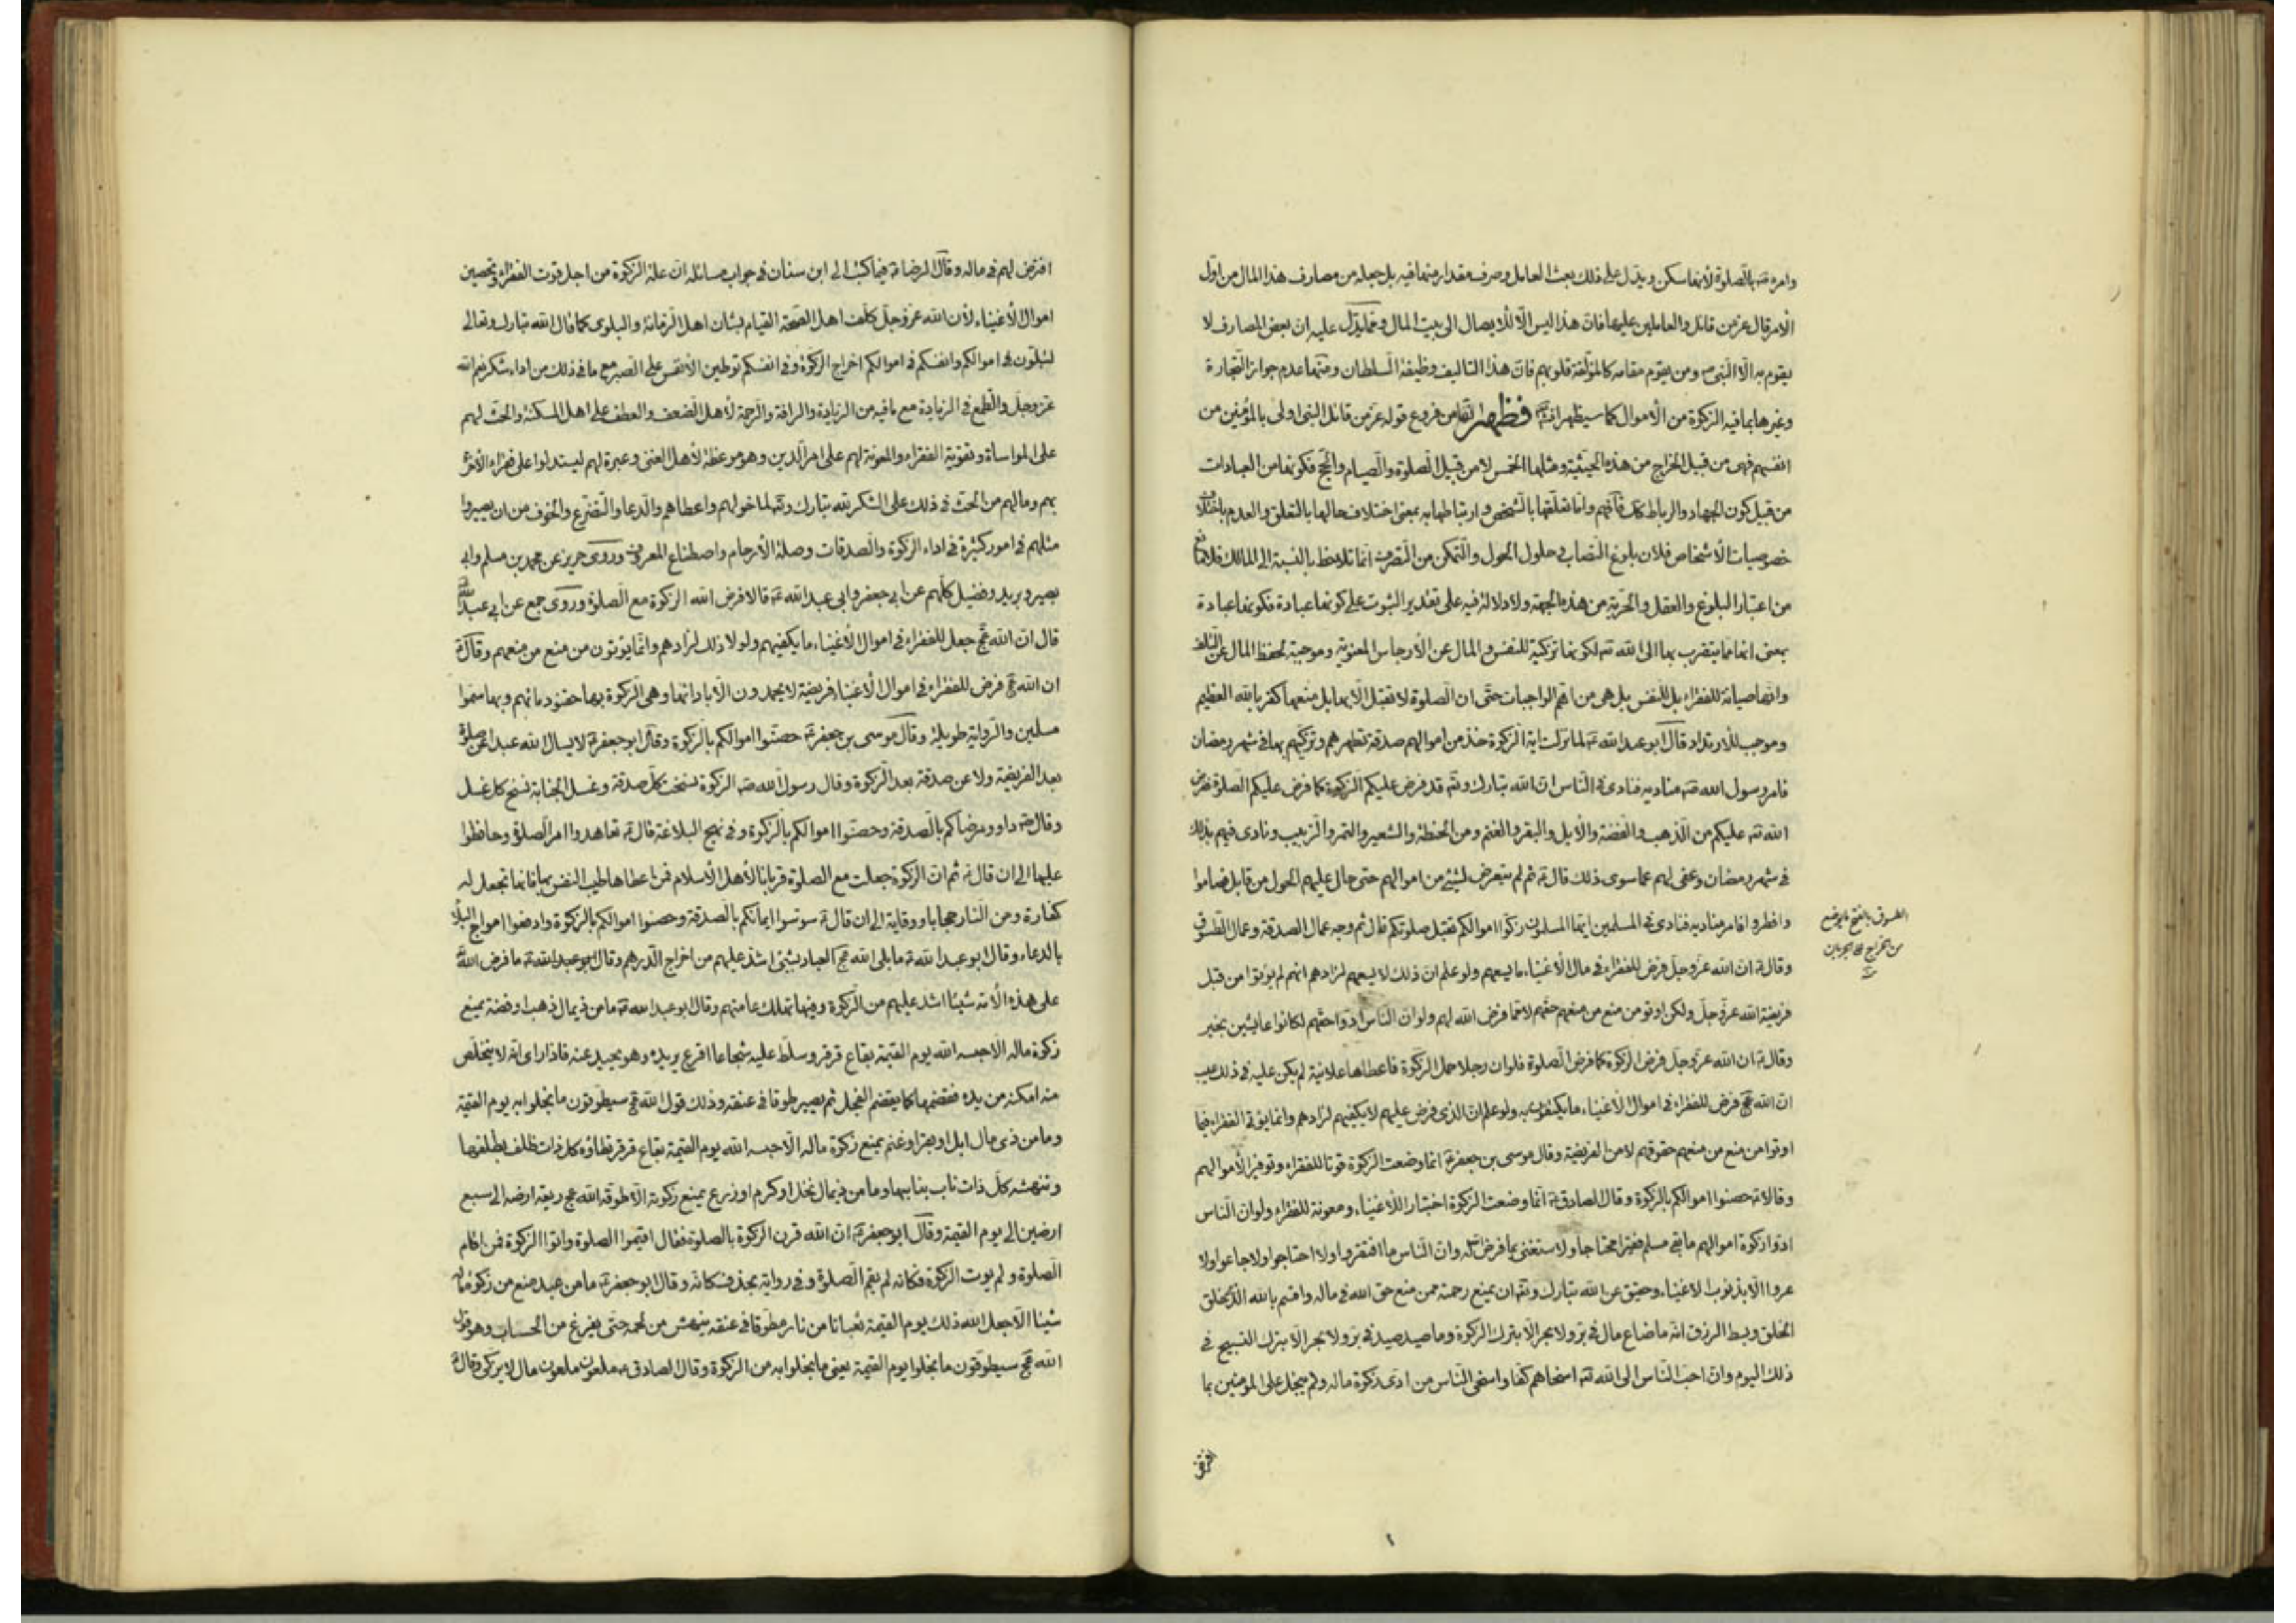 وامره ص بالصلوة لأنها سكن ويدل على ذلك بعث العامل وصرف مقدار منها فيه بل جعله من مصارف هذا المال من اول
الأمر قال عز من قائل والعاملين عليها فان هذا ليس الا للايصال الى بيت المال ومما يدل عليه ان بعض المصارف لا
يقوم به الا النبي ص ومن يقوم مقامه كالمؤلفة قلوبهم فان هذا التاليف وظيفة السلطان ومنها عدم جواز التجارة
وغيرها بما فيه الزكوة من الأموال كما سيظهر فظهر انها من فروع قوله عز من قائل النبي اولى بالمؤمنين من
انفسهم فهى من قبيل الخراج من هذه الحيثية ومثلها الخمس لا من قبيل الصلوة والصيام والحج فكونها من العبادات
من قبيل كون الجهاد والرباط كك فافهم واما تعلقها بالشخص وارتباطها به بمعنى اختلاف حالها بالتعلق والعدم باختلاف
خصوصيات الأشخاص فلان بلوغ النصاب فى حلول الحول والتمكن من التصرف انما تلاحظ بالنسبة الى المالك
من اعتبار البلوغ والعقل والحرية من هذه الجهة ولا دلالة فيه على تقدير الثبوت على كونها عبادة فكونها عبادة
بمعنى انها مما يتقرب بها الى الله تع لكونها تزكية للنفس والمال عن الأرجاس المعنوية وموجبة لحفظ المال عن التلف
وانها صيانة للفقراء بل للنفس بل هى من اهم الواجبات حتى ان الصلوة لا تقبل الا بها بل منعها كفر بالله العظيم
وموجب للارتداد قال ابو عبد الله ع لما نزلت اية الزكوة خذ من اموالهم صدقة تطهرهم وتزكيهم بها فى شهر رمضان
فامر رسول الله ص مناديه فنادى فى الناس ان الله تبارك وتع قد فرض عليكم الزكوة كما فرض عليكم الصلوة ففرض
الله تع عليكم من الذهب والفضة والابل والبقر والغنم ومن الحنطة والشعير والتمر والزبيب ونادى فيهم بذلك
فى شهر رمضان وعفى لهم عما سوى ذلك قال ع ثم لم يتعرض لشيء من اموالهم حتى حال عليهم الحول من قابل فصاموا
وافطروا فامر مناديه فنادى فى المسلمين ايها المسلمون زكوا اموالكم تقبل صلوتكم قال ثم وجه عمال الصدقة وعمال الطسوق
وقال ع ان الله عز وجل فرض للفقراء فى مال الأغنياء ما يسعهم ولو علم ان ذلك لا يسعهم لزادهم انهم لم يؤتوا من قبل
فريضة الله عز وجل ولكن اوتو من منع من منعهم حقهم لا مما فرض الله لهم ولو ان الناس ادوا حقهم لكانوا عايشين بخير
وقال ع ان الله عز وجل فرض الزكوة كما فرض الصلوة فلو ان رجلا حمل الزكوة فاعطاها علانية لم يكن عليه فى ذلك عيب
ان الله عج فرض للفقراء فى اموال الأغنياء ما يكتفون به ولو علم ان الذى فرض عليهم لا يكفيهم لزادهم وانما يؤتى الفقراء فيما
اوتوا من منع من منعهم حقوقهم لا من الفريضة وقال موسى بن جعفر ع انما وضعت الزكوة قوتا للفقراء وتوفيرا لأموالهم
وقالا ع حصنوا اموالكم بالزكوة وقال الصادق ع انما وضعت الزكوة اختبارا للأغنياء ومعونة للفقراء ولو ان الناس
ادوا زكوة اموالهم ما بقى مسلم فقيرا محتاجا ولاستغنى بما فرض الله له وان الناس ما افتقروا ولا احتاجوا ولا جاعوا ولا
عروا الا بذنوب الاغنياء وحقيق عن الله تبارك وتع ان يمنع رحمته ممن منع حق الله فى ماله واقسم بالله الذى خلق
الخلق وبسط الرزق انه ما ضاع مال فى بر ولا بحر الا بترك الزكوة وما صيد صيد فى بر ولا بحر الا بترك التسبيح فى
ذلك اليوم وان احب الناس الى الله تع اسخاهم كفا واسخى الناس من ادى زكوة ماله ولم يبخل على المؤمنين بما
افترض
الطسوق بالفتح ما يوضع
من الخراج على الجربان
منه
افترض لهم فى ماله وقال الرضا ع فيما كتب الى ابن سنان فى جواب مسائله ان علة الزكوة من اجل قوت الفقراء وتحصين
اموال الأغنياء لأن الله عز وجل كلف اهل الصحة القيام بشان اهل الزمانة والبلوى كما قال الله تبارك وتعالى
لتبلون فى اموالكم وانفسكم فى اموالكم اخراج الزكوة وفى انفسكم توطين الأنفس على الصبر مع ما فى ذلك من اداء شكر نعم الله
عز وجل والطمع فى الزيادة مع ما فيه من الزيادة والرافة والرحمة لأهل الضعف والعطف على اهل المسكنة والحث لهم
على المواساة وتقوية الفقراء والمعونة لهم على امر الدين وهو موعظة لأهل الغنى وعبرة لهم ليستدلوا على فقراء الآخرة
بهم وما لهم من الحث فى ذلك على الشكر لله تبارك وتع لما خولهم واعطاهم والدعا والتضرع والخوف من ان يصيروا
مثلهم فى امور كثيرة فى اداء الزكوة والصدقات وصلة الأرحام واصطناع المعروف وروى حريز عن محمد بن مسلم وابى
بصير وبريد وفضيل كلهم عن ابى جعفر وابى عبد الله ع قالا فرض الله الزكوة مع الصلوة وروى جمع عن ابى عبد الله
قال ان الله عج جعل للفقراء فى اموال الأغنياء ما يكفيهم ولولا ذلك لزادهم وانما يؤتون من منع من منعهم وقال ع
ان الله عج فرض للفقراء فى اموال الاغنياء فريضة لا يحمدون الا بادائها وهى الزكوة بها حقنوا دمائهم وبها سموا
مسلمين والرواية طويلة وقال موسى بن جعفر ع حصنوا اموالكم بالزكوة وقال ابو جعفر ع لا يسال الله عبدا عن صلوة
بعد الفريضة ولا عن صدقة بعد الزكوة وقال رسول الله ص الزكوة نسخت كل صدقة وغسل الجنابة نسخ كل غسل
وقال ع داووا مرضاكم بالصدقة وحصنوا اموالكم بالزكوة وفى نهج البلاغة قال ع تعاهدوا امر الصلوة وحافظوا
عليها الى ان قال ع ثم ان الزكوة جعلت مع الصلوة قربانا لأهل الأسلام فمن اعطاها طيب النفس بها فانها تجعل له
كفارة ومن النار حجابا ووقاية الى ان قال ع سوسوا ايمانكم بالصدقة وحصنوا اموالكم بالزكوة وادفعوا امواج البلاء
بالدعاء وقال ابو عبد الله ع ما بلى الله عج العباد بشئ اشد عليهم من اخراج الدرهم وقال ابو عبد الله ع ما فرض الله
على هذه الأمة شيئا اشد عليهم من الزكوة وفيها تهلك عامتهم وقال ابو عبد الله ع ما من ذى مال ذهب او فضة يمنع
زكوة ماله الا حبسه الله يوم القيمة بقاع قرقر وسلط عليه شجاعا اقرع يريده وهو يحيد عنه فاذا راى انه لا يتخلص
منه امكنه من يده فقضمها كما يقضم الفجل ثم يصير طوقا فى عنقه وذلك قول الله عج سيطوقون ما بخلوا به يوم القيمة
وما من ذى مال ابل او بقر او غنم يمنع زكوة ماله الا حبسه الله يوم القيمة بقاع قرقر تطاؤه كل ذات ظلف بظلفها
وتنهشه كل ذات ناب بنابها وما من ذى مال نخل او كرم او زرع يمنع زكوته الا طوقه الله عج ريعة ارضه الى سبع
ارضين الى يوم القيمة وقال ابو جعفر ع ان الله قرن الزكوة بالصلوة فقال اقيموا الصلوة واتوا الزكوة فمن اقام
الصلوة ولم يوت الزكوة فكانه لم يقم الصلوة وفى رواية بحذف فكانه وقال ابو جعفر ع ما من عبد منع من زكوة ماله
شيئا الا جعل الله ذلك يوم القيمة ثعبانا من نار مطوقا فى عنقه ينهش من لحمه حتى يفرغ من الحساب وهو قول
الله عج سيطوقون ما بخلوا يوم القيمة يعنى ما بخلوا به من الزكوة وقال الصادق ع ملعون ملعون مال لا يزكى وقال ع